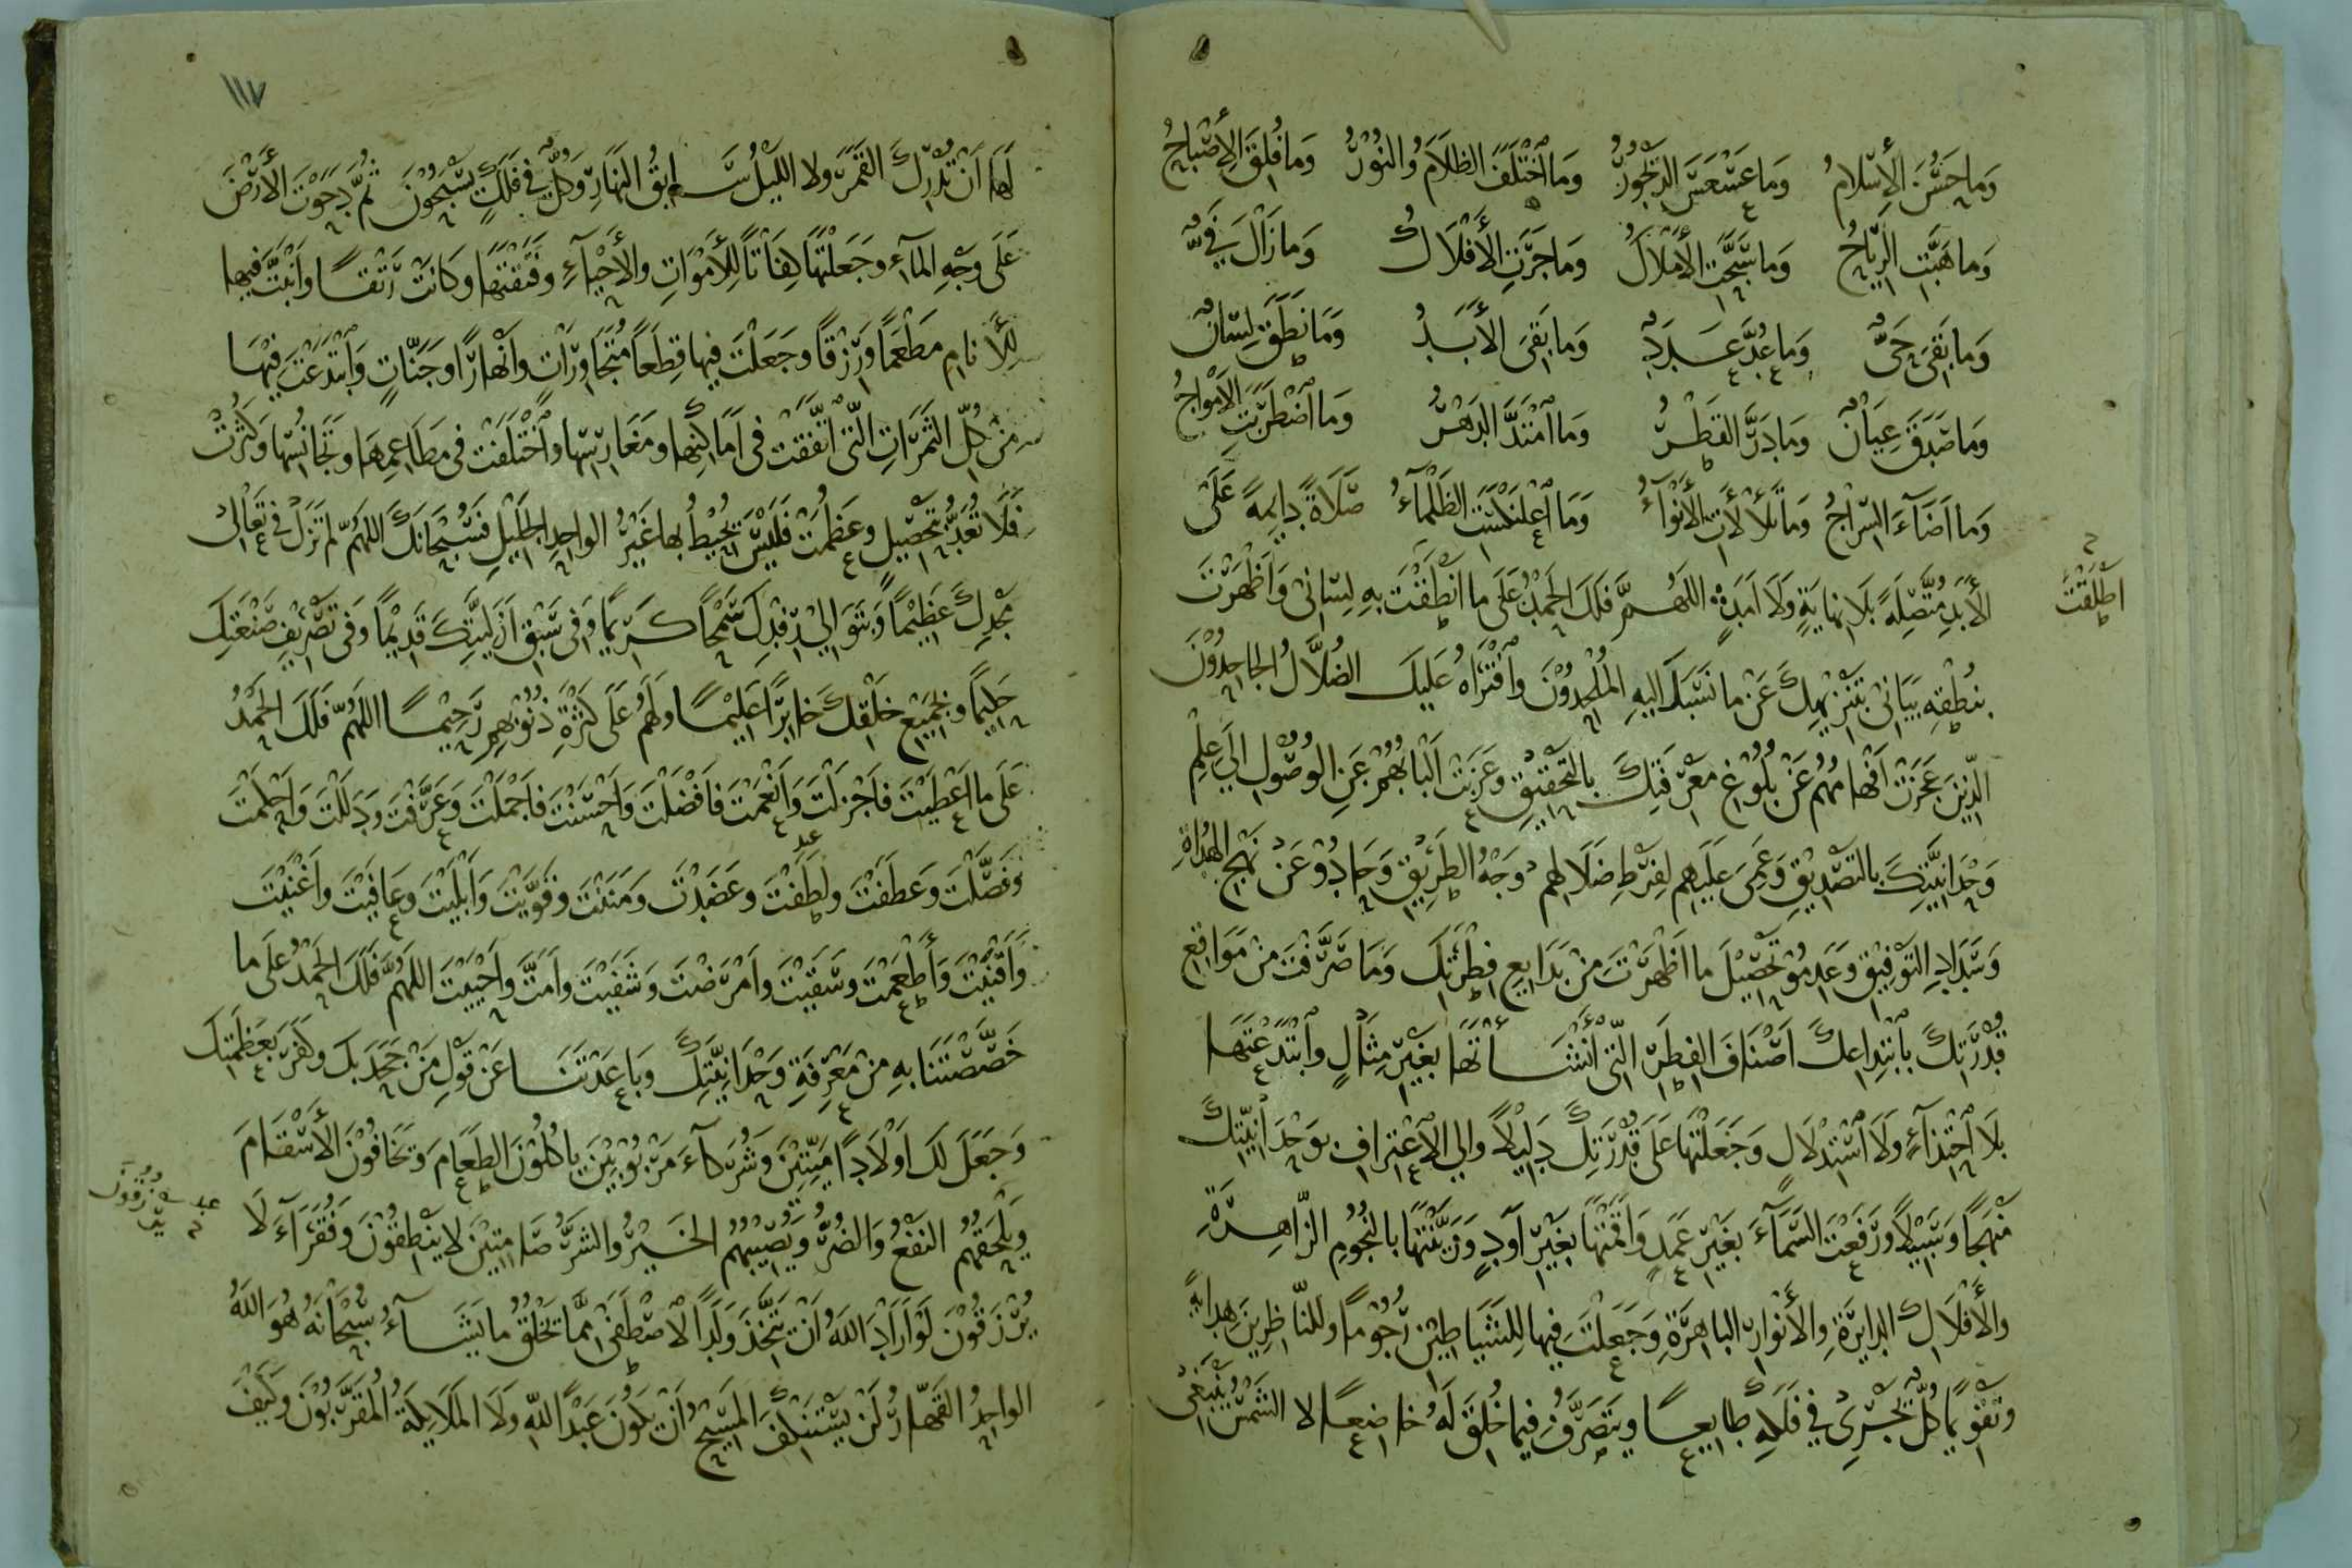 وَمَا حَسُنَ الْإِسْلَامُ وَمَا عَسْعَسَ الدَّيْجُورُ وَمَا اخْتَلَفَ الظَّلَامُ وَالنُّورُ وَمَا فُلِقَ الْأَصْبَاحُ
وَمَا هَبَّتِ الرِّيَاحُ وَمَا سَبَّحَتِ الْأَمْلَاكُ وَمَا جَرَتِ الْأَفْلَاكُ وَمَا زَالَ فَيْءٌ
وَمَا بَقِيَ حَيٌّ وَمَا عُدَّ عَدَدٌ وَمَا بَقِيَ الْأَبَدُ وَمَا نَطَقَ لِسَانٌ
وَمَا صَدَقَ عِيَانٌ وَمَا دَرَّ الْقَطْرُ وَمَا امْتَدَّ الدَّهْرُ وَمَا اضْطَرَبَتِ الْأَمْوَاجُ
وَمَا أَضَاءَ السِّرَاجُ وَمَا تَلَأْلَأَتِ الْأَنْوَاءُ وَمَا اعْلَنْكَسَتِ الظَّلْمَاءُ صَلَاةً دَايِمَةً عَلَى
الْأَبَدِ مُتَّصِلَةً بِلَا نِهَايَةٍ وَلَا أَمَدٍ اللَّهُمَّ فَلَكَ الْحَمْدُ عَلَى مَا أَنْطَقْتَ بِهِ لِسَانِي وَأَظْهَرْتَ
أَطْلَقْتَ
بِنُطْقِهِ بَيَانِي بِتَنْزِيهِكَ عَنْ مَا نَسَبَكَ إِلَيْهِ الْمُلْحِدُونَ وَافْتَرَاهُ عَلَيْكَ الضُّلَّالُ الْجَاحِدُونَ
الَّذِينَ عَجَزَتْ أَفْهَامُهُمْ عَنْ بُلُوغِ مَعْرِفَتِكَ بِالتَّحْقِيقِ وَعَزَبَتْ أَلْبَابُهُمْ عَنِ الْوُصُولِ إِلَى عِلْمِ
وَحْدَانِيَّتِكَ بِالتَّصْدِيقِ وَعَمِيَ عَلَيْهِمْ لِفَرْطِ ضَلَالِهِمْ وَجْهُ الطَّرِيقِ وَحَادُوا عَنْ نَهْجِ الْهُدَاةِ
وَسَدَادِ التَّوْفِيقِ وَعَدِمُوا تَحْصِيلَ مَا أَظْهَرْتَ مِنْ بَدَايِعِ فِطْرَتِكَ وَمَا صَرَّفْتَ مِنْ مَوَاقِعِ
قُدْرَتِكَ بِابْتِدَاعِكَ أَصْنَافَ الْفِطَرِ الَّتِي أَنْشَأْتَهَا بِغَيْرِ مِثَالٍ وَابْتَدَعْتَهَا
بِلَا احْتِذَاءٍ وَلَا اسْتِدْلَالٍ وَجَعَلْتَهَا عَلَى قُدْرَتِكَ دَلِيلًا وَإِلَى الْاِعْتِرَافِ بِوَحْدَانِيَّتِكَ
مَنْهَجًا وَسَبِيلًا وَرَفَعْتَ السَّمَاءَ بِغَيْرِ عَمَدٍ وَأَقَمْتَهَا بِغَيْرِ أَوَدٍ وَزَيَّنْتَهَا بِالنُّجُومِ الزَّاهِرَةِ
وَالْأَفْلَاكِ الدَّايِرَةِ وَالْأَنْوَارِ الْبَاهِرَةِ وَجَعَلْتَ فِيهَا لِلشَّيَاطِينَ رُجُومًا وَلِلنَّاظِرِينَ هِدَايَةً
وَتَقْوِيمًا كُلٌّ يَجْرِي فِي فَلَكِهِ طَايِعًا وَيَتَصَرَّفُ فِيمَا خُلِقَ لَهُ خَاضِعًا لَا الشَّمْسُ يَنْبَغِي
١١٧
لَهَا أَنْ تُدْرِكَ الْقَمَرَ وَلَا اللَّيْلُ سَابِقُ النَّهَارِ وَكُلٌّ فِي فَلَكٍ يَسْبَحُونَ ثُمَّ دَحَوْتَ الْأَرْضَ
عَلَى وَجْهِ الْمَاءِ وَجَعَلْتَهَا كِفَاتًا لِلْأَمْوَاتِ وَالْأَحْيَاءِ وَفَتَقْتَهَا وَكَانَتْ رَتْقًا وَأَنْبَتَّ فِيهَا
لِلْأَنَامِ مَطْعَمًا وَرِزْقًا وَجَعَلْتَ فِيهَا قِطَعًا مُتَجَاوِرَاتٍ وَأَنْهَارًا وَجَنَّاتٍ وَابْتَدَعْتَ فِيهَا
مِنْ كُلِّ الثَّمَرَاتِ الَّتِي اتَّفَقَتْ فِي أَمَاكِنِهَا وَمَغَارِسِهَا وَاخْتَلَفَتْ فِي مَطَاعِمِهَا وَتَجَانُسِهَا وَكَثُرَتْ
فَلَا تُعَدُّ بِتَحْصِيلٍ وَعَظُمَتْ فَلَيْسَ يُحِيطُ بِهَا غَيْرُ الْوَاحِدِ الْجَلِيلِ فَسُبْحَانَكَ اللَّهُمَّ لَمْ تَزَلْ فِي تَعَالِي
مَجْدِكَ عَظِيمًا وَبِتَوَالِي رِفْدِكَ سَمْحًا كَرِيمًا وَفِي سَبْقِ أَزَلِيَّتِكَ قَدِيمًا وَفِي تَصْرِيفِ صَنْعَتِكَ
حَلِيمًا وَبِجَمِيعِ خَلْقِكَ خَابِرًا عَلِيمًا وَلَهُمْ عَلَى كَثْرَةِ ذُنُوبِهِمْ رَحِيمًا اللَّهُمَّ فَلَكَ الْحَمْدُ
عَلَى مَا أَعْطَيْتَ فَأَجْزَلْتَ وَأَنْعَمْتَ فَأَفْضَلْتَ وَأَحْسَنْتَ فَأَجْمَلْتَ وَعَرَّفْتَ وَدَلَلْتَ وَأَحْكَمْتَ
وَفَصَّلْتَ وَعَطَفْتَ وَلَطَفْتَ وَعَضَدْتَ وَمَنَنْتَ وَقَوَّيْتَ وَأَبْلَيْتَ وَعَافَيْتَ وَأَغْنَيْتَ
وَأَقْنَيْتَ وَأَطْعَمْتَ وَسَقَيْتَ وَأَمْرَضْتَ وَشَفَيْتَ وَأَمَتَّ وَأَحْيَيْتَ اللَّهُمَّ فَلَكَ الْحَمْدُ عَلَى مَا
خَصَّصْتَنَا بِهِ مِنْ مَعْرِفَةِ وَحْدَانِيَّتِكَ وَبَاعَدْتَنَا عَنْ قَوْلِ مَنْ جَحَدَ بِكَ وَكَفَرَ بِعَظَمَتِكَ
وَجَعَلَ لَكَ أَوْلَادًا مَيِّتِينَ وَشُرَكَاءَ مَرْبُوبِينَ يَاكُلُونَ الطَّعَامَ وَيَخَافُونَ الْأَسْقَامَ
وَيَلْحَقُهُمُ النَّفْعُ وَالضُّرُّ وَيُصِيبُهُمُ الْخَيْرُ وَالشَّرُّ صَامِتِينَ لَا يَنْطِقُونَ وَفُقَرَاءَ لَا
يُرْزَقُونَ
يُرْزَقُونَ لَوْ أَرَادَ اللَّهُ أَنْ يَتَّخِذَ وَلَدًا لَاصْطَفَى مِمَّا يَخْلُقُ مَا يَشَاءُ سُبْحَانَهُ هُوَ اللَّهُ
الْوَاحِدُ الْقَهَّارُ لَنْ يَسْتَنْكِفَ الْمَسِيحُ أَنْ يَكُونَ عَبْدًا لِلَّهِ وَلَا الْمَلَايِكَةُ الْمُقَرَّبُونَ وَكَيْفَ